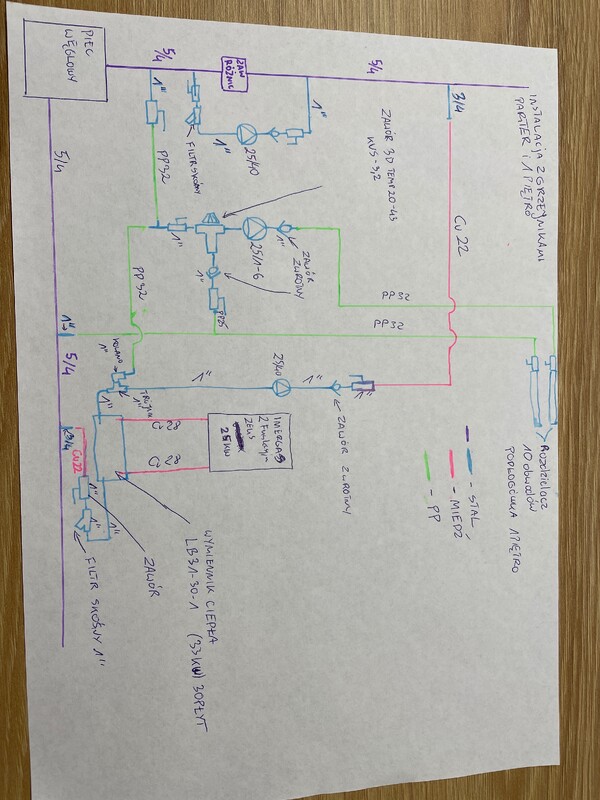 PIEC
WĘGLOWY
5/4
ZAW
RÓŻNIC
5/4
INSTALACJA Z GRZEJNIKAMI
PARTER i 1 PIĘTRO
1"
PP32
FILTR SKOŚNY
1"
25/40
1"
3/4
Cu 22
ZAWÓR 3D TEMP 20-43
KVS-3,2
1"
25/1-6
1"
ZAWÓR
ZWROTNY
1"
PP25
PP32
PP32
PP32
5/4
1"
5/4
KOLANO
1"
TRÓJNIK
1"
1"
25/40
1"
1"
ZAWÓR ZWROTNY
Rozdzielacz
10 obwodów
PODŁOGÓWKA 1 PIĘTRO
- STAL
- MIEDŹ
- PP
IMERGAS
2 Funkcyjn
ZEUS
25KW
Cu 28
Cu 28
3/4
Cu22
1"
1"
1"
ZAWÓR
FILTR SKOŚNY 1"
WYMIENNIK CIEPŁA
LB31-30-1 (33KW) 30PŁYT